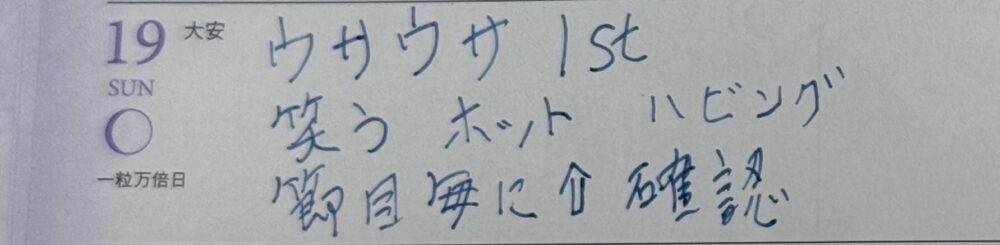 19 大安
SUN
一粒万倍日
ウサウサ 1st
笑う ホット ハビング
節目毎に⇧確認